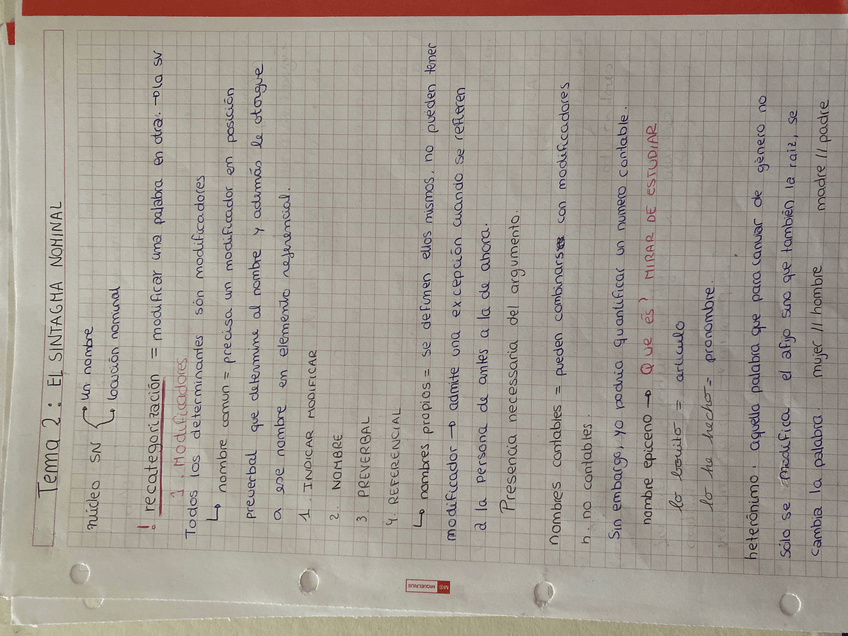 Tema 2: EL SINTAGMA NOMINAL
núcleo SN → un nombre
↳ locución nominal
! recategorización = modificar una palabra en otra. → la sv
1. Modificadores
Todos los determinantes són modificadores
↳ nombre comun = precisa un modificador en posición
preverbal que determine al nombre y además le otorgue
a ese nombre en elemento referencial.
1. INDICAR MODIFICAR
2. NOMBRE
3. PREVERBAL
4 REFERENCIAL
↳ nombres propios = se definen ellos mismos, no pueden tener
modificador → admite una excepción cuando se refitren
a la persona de antes a la de ahora.
Presencia necessaria del argumento.
nombres contables = pueden combinarse con modificadores
n. no contables.
Sin embargo, yo podria quantificar un numero contable.
nombre epiceno → Que és? MIRAR DE ESTUDIAR
lo bonito = articulo
lo he hecho = pronombre.
heterónimo: aquella palabra que para canviar de género no
sólo se modifica el afijo sino que también la raiz, se
cambia la palabra. mujer // hombre madre // padre
MIQUELRIUS